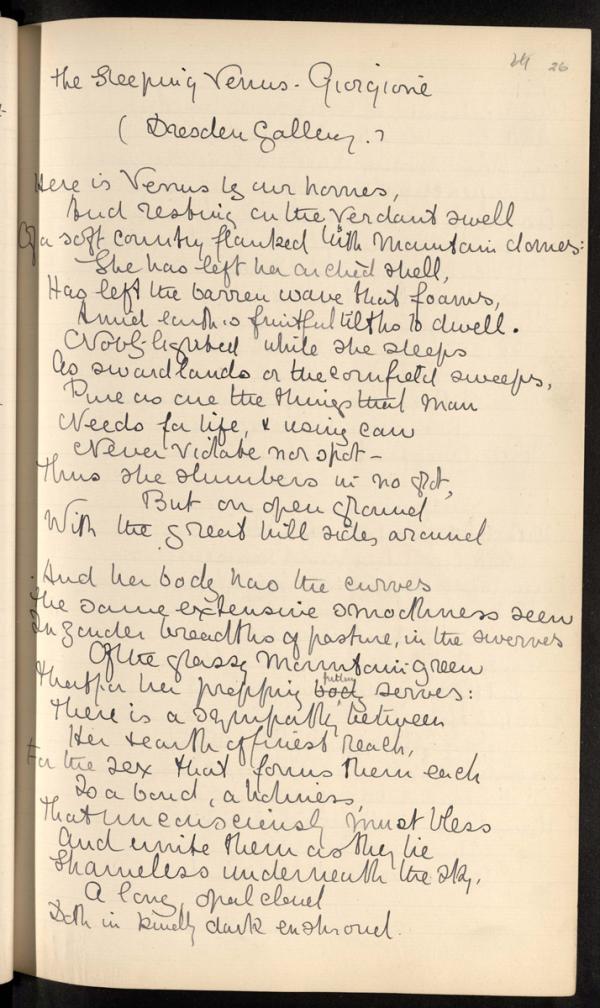 24 26
The Sleeping Venus - Giorgione
( Dresden Gallery. )
Here is Venus by our homes,
And resting on the verdant swell
Of a soft country flanked with mountain domes:
She has left her archèd shell,
Has left the barren wave that foams,
Amid earth's fruitful tilths to dwell.
Nobly-lighted while she sleeps
As swardlands or the cornfield sweeps,
Pure as are the things that man
Needs for life, & using can
Never violate nor spot -
Thus she slumbers in no grot,
But on open ground
With the great hill sides around
And her body has the curves
The same extensive smoothness seen
In yonder breadths of pasture, in the swerves
Of the grassy mountain green
That for her propping pillow serves:
There is a sympathy between
Her & earth of finest reach,
For the sex that forms them each
Is a bond, a holiness,
That unconsciously must bless
And unite them as they lie
Shameless underneath the sky.
A long, opal cloud
Doth in kindly dark enshroud.